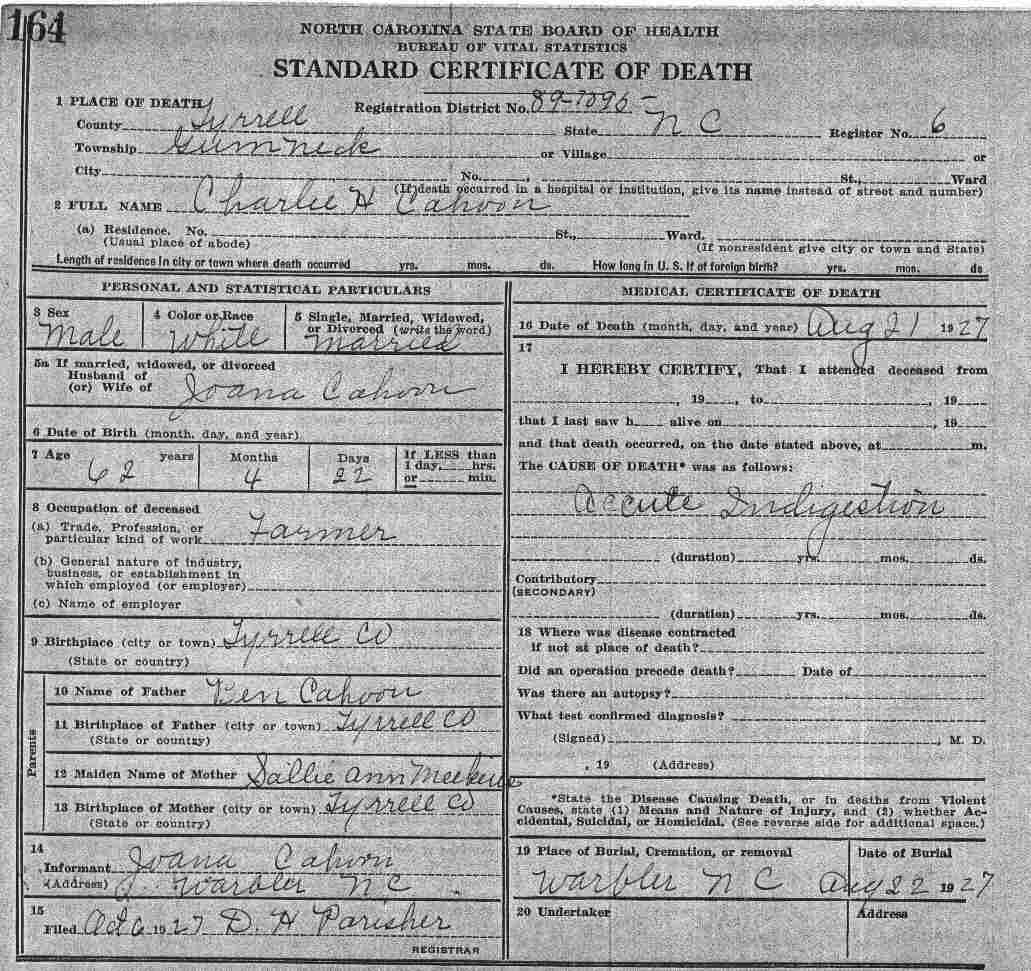 164
NORTH CAROLINA STATE BOARD OF HEALTH
BUREAU OF VITAL STATISTICS
STANDARD CERTIFICATE OF DEATH
1 PLACE OF DEATH
Registration District No. 89-7095-
County Tyrrell State N C Register No. 6
Township Gum Neck or Village or
City No. , St., Ward
(If death occurred in a hospital or institution, give its name instead of street and number)
2 FULL NAME Charlie H Cahoon
(a) Residence. No. St., Ward,
(Usual place of abode) (If nonresident give city or town and State)
Length of residence in city or town where death occurred yrs. mos. ds. How long in U. S. if of foreign birth? yrs. mos. ds
PERSONAL AND STATISTICAL PARTICULARS
3 Sex 4 Color or Race 5 Single, Married, Widowed,
or Divorced (write the word)
Male White Married
5a If married, widowed, or divorced
Husband of
(or) Wife of Joana Cahoon
6 Date of Birth (month, day, and year)
7 Age years Months Days If LESS than
1 day, hrs.
or min.
62 4 22
8 Occupation of deceased
(a) Trade, Profession, or
particular kind of work Farmer
(b) General nature of industry,
business, or establishment in
which employed (or employer)
(c) Name of employer
9 Birthplace (city or town) Tyrrell CO
(State or country)
Parents
10 Name of Father Ben Cahoon
11 Birthplace of Father (city or town) Tyrrell CO
(State or country)
12 Maiden Name of Mother Sallie Ann Meekins
13 Birthplace of Mother (city or town) Tyrrell CO
(State or country)
14
Informant Joana Cahoon
(Address) Warbler N C
15
Filed Oct 6 1927 D. H Parisher
REGISTRAR
MEDICAL CERTIFICATE OF DEATH
16 Date of Death (month, day, and year) Aug 21 1927
17
I HEREBY CERTIFY, That I attended deceased from
, 19 , to , 19
that I last saw h alive on , 19
and that death occurred, on the date stated above, at m.
The CAUSE OF DEATH* was as follows:
Accute Indigestion
(duration) yrs. mos. ds.
Contributory
(SECONDARY)
(duration) yrs. mos. ds.
18 Where was disease contracted
if not at place of death?
Did an operation precede death? Date of
Was there an autopsy?
What test confirmed diagnosis?
(Signed) , M. D.
, 19 (Address)
*State the Disease Causing Death, or in deaths from Violent
Causes, state (1) Means and Nature of Injury, and (2) whether Ac-
cidental, Suicidal, or Homicidal. (See reverse side for additional space.)
19 Place of Burial, Cremation, or removal Date of Burial
Warbler N C Aug 22 1927
20 Undertaker Address